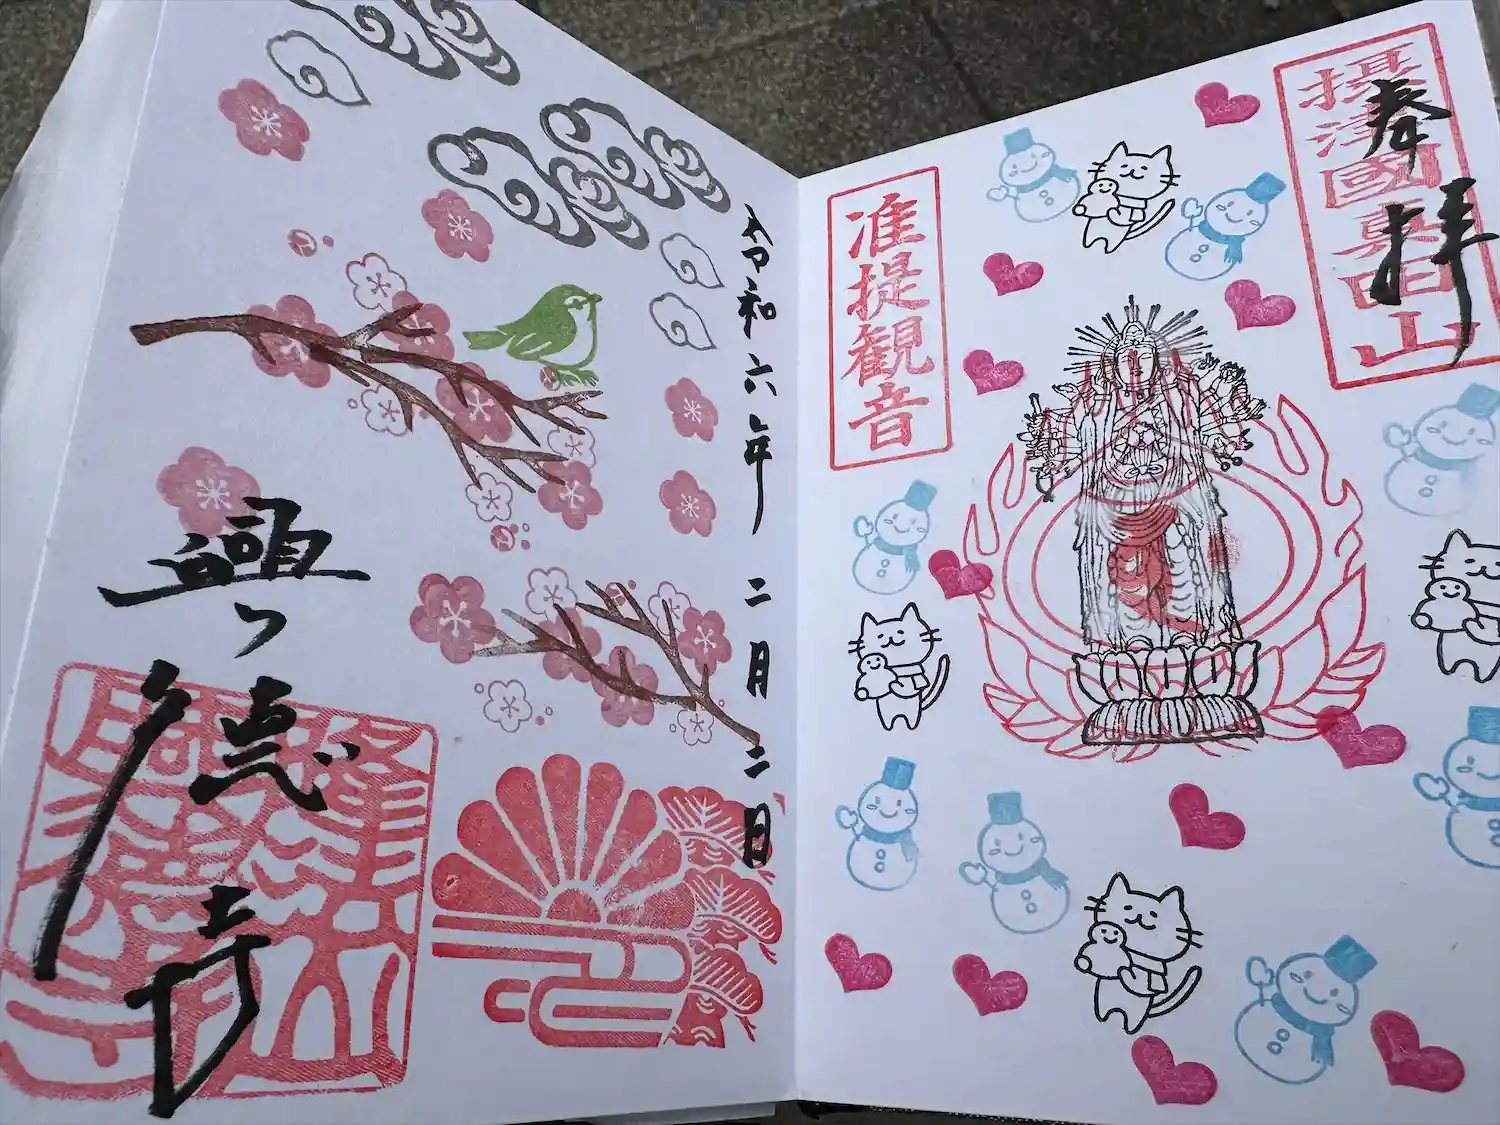 奉拝
攝津國真田山
准提観音
令和六年二月二日
興徳寺